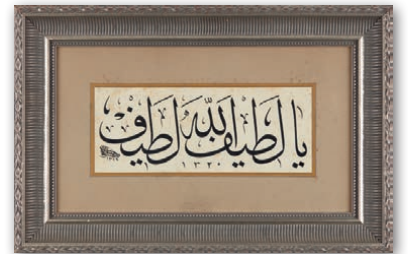 يا لطيف الله لطيف
١٣٢٠